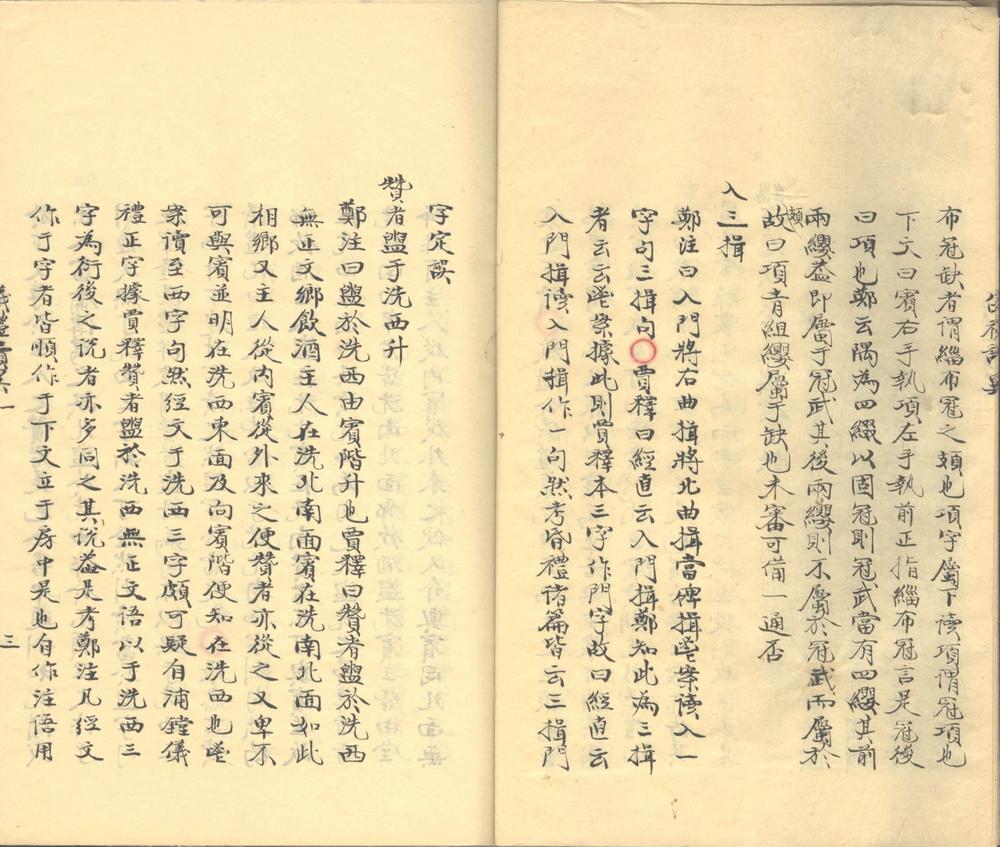 布冠缺者謂緇布冠之頍也項字屬下讀項謂冠項也
下文曰賓右手執項左手執前正指緇布冠言是冠後
曰項也鄭云隅為四綴以固冠則冠武當有四纓其前
兩纓蓋即屬于冠武其後兩纓則不屬於冠武而屬於
頍
故曰項青組纓屬于缺也未審可備一通否
入三揖
鄭注曰入門將右曲揖將北曲揖當碑揖鑒案讀入一
字句三揖句○賈釋曰經直云入門揖鄭知此為三揖
者云云鑒案據此則賈釋本三字作門字故曰經直云
入門揖讀入門揖作一句然考昏禮諸篇皆云三揖門
字定誤
贊者盥于洗西升
鄭注曰盥於洗西由賓階升也賈釋曰贊者盥於洗西
無正文鄉飲酒主人在洗北南面賓在洗南北面如此
相鄉又主人從內賓從外來之便贊者亦從之又卑不
可與賓並明在洗西東面及向賓階便知在洗西也鑒
案讀至西字句然經文于洗西三字頗可疑自浦鏜儀
禮正字據賈釋贊者盥於洗西無正文語以于洗西三
字為衍後之說者亦多同之其說蓋是考鄭注凡經文
作于字者皆順作于下文立于房中是也自作注語用
三